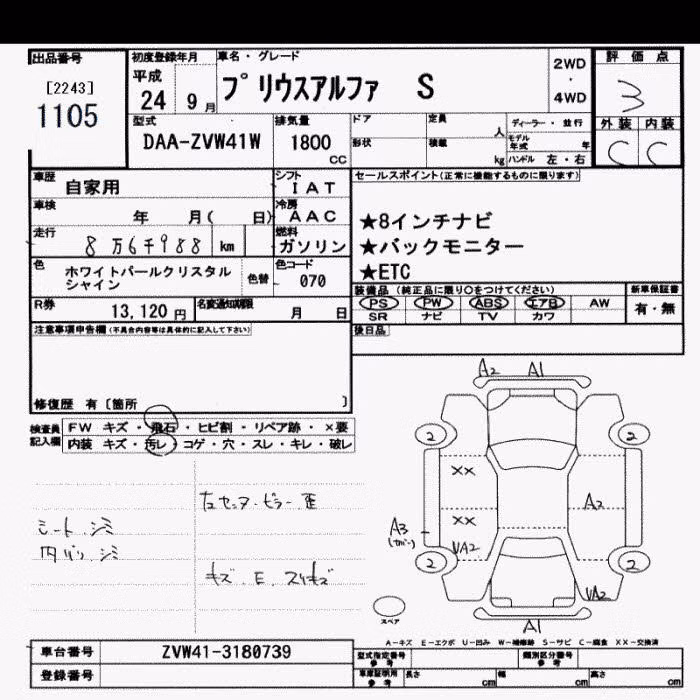 出品番号 初度登録年月 車名・グレード 評価点
[2243] 平成 2WD
1105 24 9月 プリウスアルファ S ・ 3
4WD
型式 排気量 ドア 定員 ディーラー・並行 外装 内装
DAA-ZVW41W 1800 人 モデル年式 年 C C
cc 形状 積載 kg ハンドル 左・右
車歴 自家用 シフト IAT セールスポイント(正常に機能するものに限ります)
車検 年 月( 日) 冷房 AAC ★8インチナビ
走行 8万6千988 km 燃料 ガソリン ★バックモニター
色 ホワイトパールクリスタル 色替 色コード ★ETC
シャイン 070
装備品(純正品に限り○をつけてください) 新車保証書
R券 13,120円 名変通知期限 月 日 PS PW ABS エアB AW 有・無
SR ナビ TV カワ
注意事項申告欄(不具合内容等は具体的に記入して下さい) 後日品
修復歴 有〔箇所 〕
検査員記入欄 FW キズ・飛石・ヒビ割・リペア跡・×要
内装 キズ・汚レ・コゲ・穴・スレ・キレ・破レ
A2 A1
2 2
XX
左センターピラー歪 A2
シート シミ XX
内バリ シミ A3
VA2
2 2
キズ、E、スリキズ VA2
スペア A1
A-キズ E-エクボ U-凹み W-補修跡 S-サビ C-腐食 XX-交換済
車台番号 ZVW41-3180739 型式指定番号 参考 類別区分番号 参考
登録番号 車庫証明用 参考 長さ cm 幅 cm 高さ cm